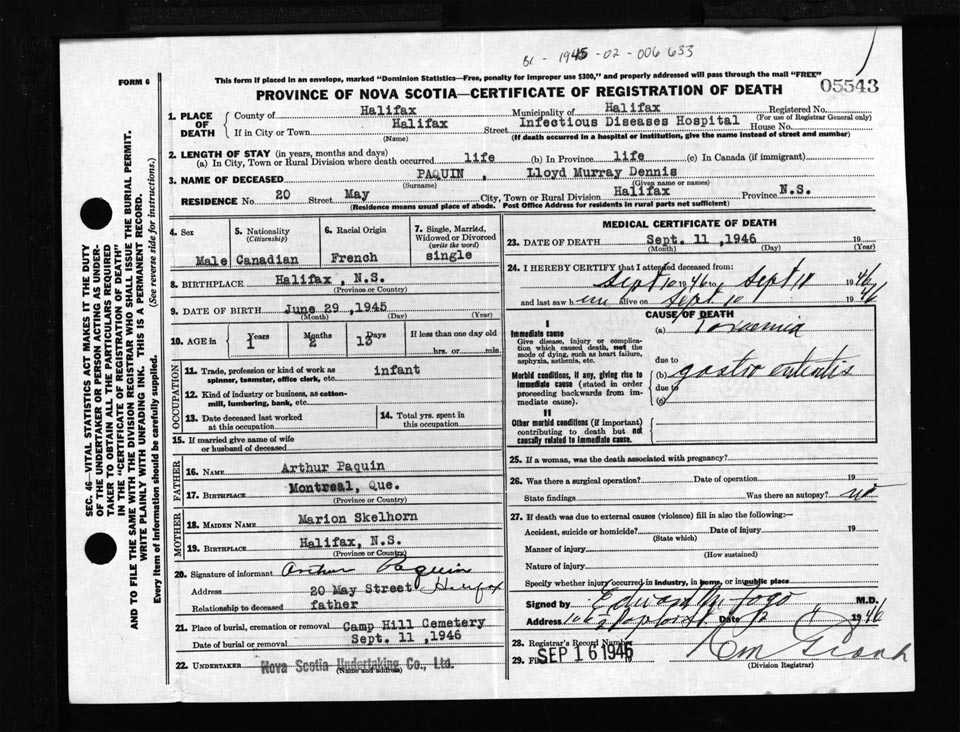 BC - 1945-02-006633
FORM 6
This form if placed in an envelope, marked "Dominion Statistics—Free, penalty for improper use $300," and properly addressed will pass through the mail "FREE"
PROVINCE OF NOVA SCOTIA—CERTIFICATE OF REGISTRATION OF DEATH
05543
1. PLACE OF DEATH
County of Halifax
Municipality of Halifax
Registered No.
(For use of Registrar General only)
If in City or Town Halifax
(Name)
Street Infectious Diseases Hospital House No.
(If death occurred in a hospital or institution, give the name instead of street and number)
2. LENGTH OF STAY (in years, months and days)
(a) In City, Town or Rural Division where death occurred life (b) In Province life (c) In Canada (if immigrant)
3. NAME OF DECEASED PAQUIN, Lloyd Murray Dennis
(Surname) (Given name or names)
RESIDENCE No. 20 Street May City, Town or Rural Division Halifax Province N.S.
(Residence means usual place of abode. Post Office Address for residents in rural parts not sufficient)
4. Sex
Male
5. Nationality
(Citizenship)
Canadian
6. Racial Origin
French
7. Single, Married, Widowed or Divorced
(write the word)
single
8. BIRTHPLACE Halifax, N.S.
(Province or Country)
9. DATE OF BIRTH June 29, 1945
(Month) (Day) (Year)
10. AGE in
Years
1
Months
2
Days
13
If less than one day old
hrs. or min.
OCCUPATION
11. Trade, profession or kind of work as spinner, teamster, office clerk, etc. infant
12. Kind of industry or business, as cotton-mill, lumbering, bank, etc.
13. Date deceased last worked at this occupation
14. Total yrs. spent in this occupation
15. If married give name of wife or husband of deceased
FATHER
16. NAME Arthur Paquin
17. BIRTHPLACE Montreal, Que.
(Province or Country)
MOTHER
18. MAIDEN NAME Marion Skelhorn
19. BIRTHPLACE Halifax, N.S.
(Province or Country)
20. Signature of informant Arthur Paquin
Address 20 May Street Halifax
Relationship to deceased father
21. Place of burial, cremation or removal Camp Hill Cemetery
Date of burial or removal Sept. 11, 1946
22. UNDERTAKER Nova Scotia Undertaking Co., Ltd.
(Name and address)
MEDICAL CERTIFICATE OF DEATH
23. DATE OF DEATH Sept. 11, 1946 19
(Month) (Day) (Year)
24. I HEREBY CERTIFY that I attended deceased from:
Sept 10 1946 to Sept 11 1946
and last saw him alive on Sept 10 1946
CAUSE OF DEATH
I
Immediate cause
Give disease, injury or complication which caused death, not the mode of dying, such as heart failure, asphyxia, asthenia, etc.
(a) Toxaemia
due to
Morbid conditions, if any, giving rise to immediate cause (stated in order proceeding backwards from immediate cause).
(b) gastro enteritis
due to
(c)
II
Other morbid conditions (if important) contributing to death but not causally related to immediate cause.
25. If a woman, was the death associated with pregnancy?
26. Was there a surgical operation? Date of operation 19
State findings Was there an autopsy? no
27. If death was due to external causes (violence) fill in also the following:—
Accident, suicide or homicide? Date of injury 19
(State which)
Manner of injury
(How sustained)
Nature of injury
Specify whether injury occurred in industry, in home, or in public place
Signed by M.D.
Address Date 1946
28. Registrar's Record Number
29. Filed SEP 16 1946
(Division Registrar)
SEC. 46—VITAL STATISTICS ACT MAKES IT THE DUTY
OF THE UNDERTAKER OR PERSON ACTING AS UNDER-
TAKER TO OBTAIN ALL THE PARTICULARS REQUIRED
IN THE "CERTIFICATE OF REGISTRATION OF DEATH"
AND TO FILE THE SAME WITH THE DIVISION REGISTRAR WHO SHALL ISSUE THE BURIAL PERMIT.
WRITE PLAINLY WITH UNFADING INK. THIS IS A PERMANENT RECORD.
Every item of Information should be carefully supplied. (See reverse side for instructions.)